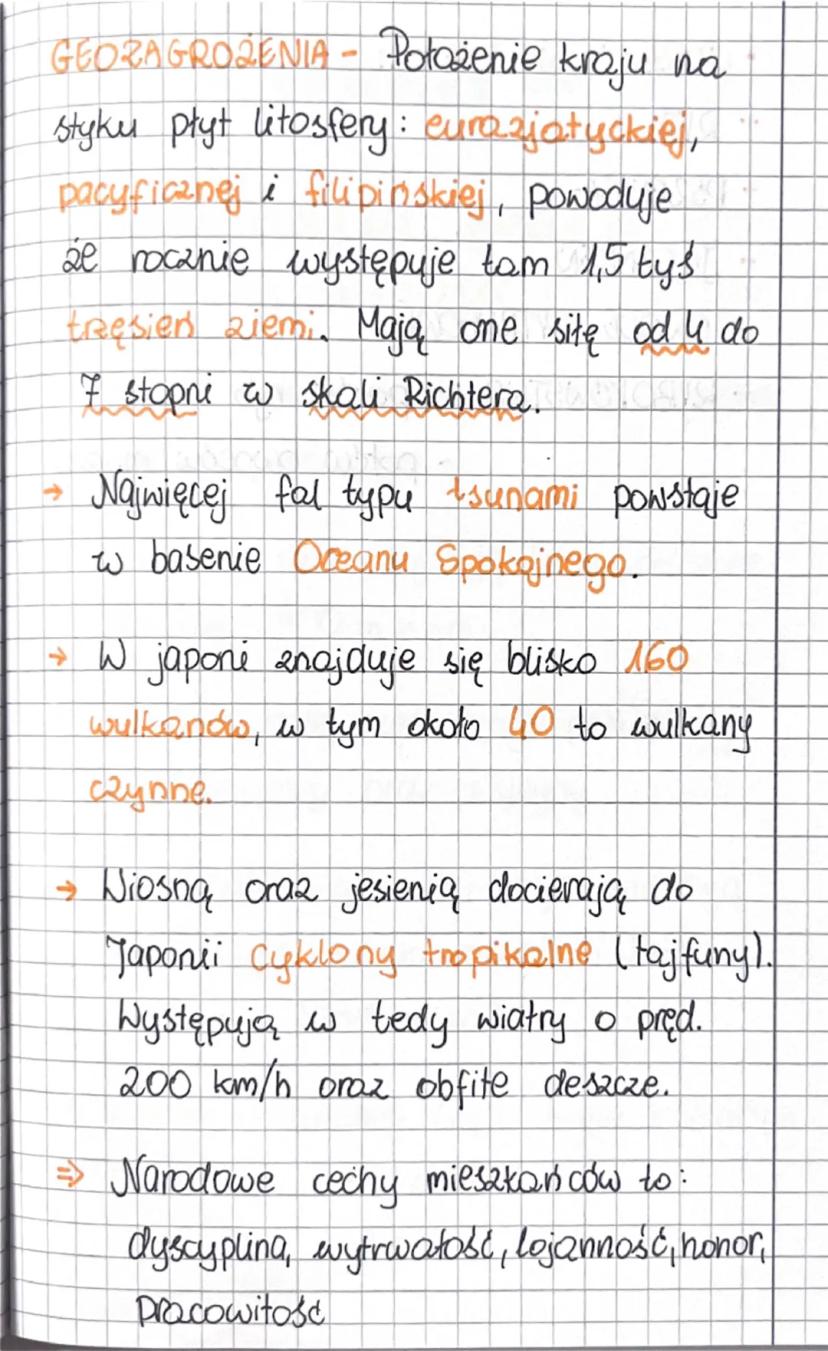 GEOZAGROŻENIA - Położenie kraju na
styku płyt litosfery: eurazjatyckiej,
pacyficznej i filipińskiej, powoduje
że rocznie występuje tam 1,5 tyś
trzęsień ziemi. Mają one siłę od 4 do
7 stopni w skali Richtera.
→ Najwięcej fal typu tsunami powstaje
w basenie Oceanu Spokojnego.
→ W japoni znajduje się blisko 160
wulkanów, w tym około 40 to wulkany
czynne.
→ Wiosną oraz jesienią docierają do
Japonii cyklony tropikalne (tajfuny).
Występują w tedy wiatry o pręd.
200 km/h oraz obfite deszcze.
⇒ Narodowe cechy mieszkańców to:
dyscyplina, wytrwałość, lojanność, honor,
pracowitość